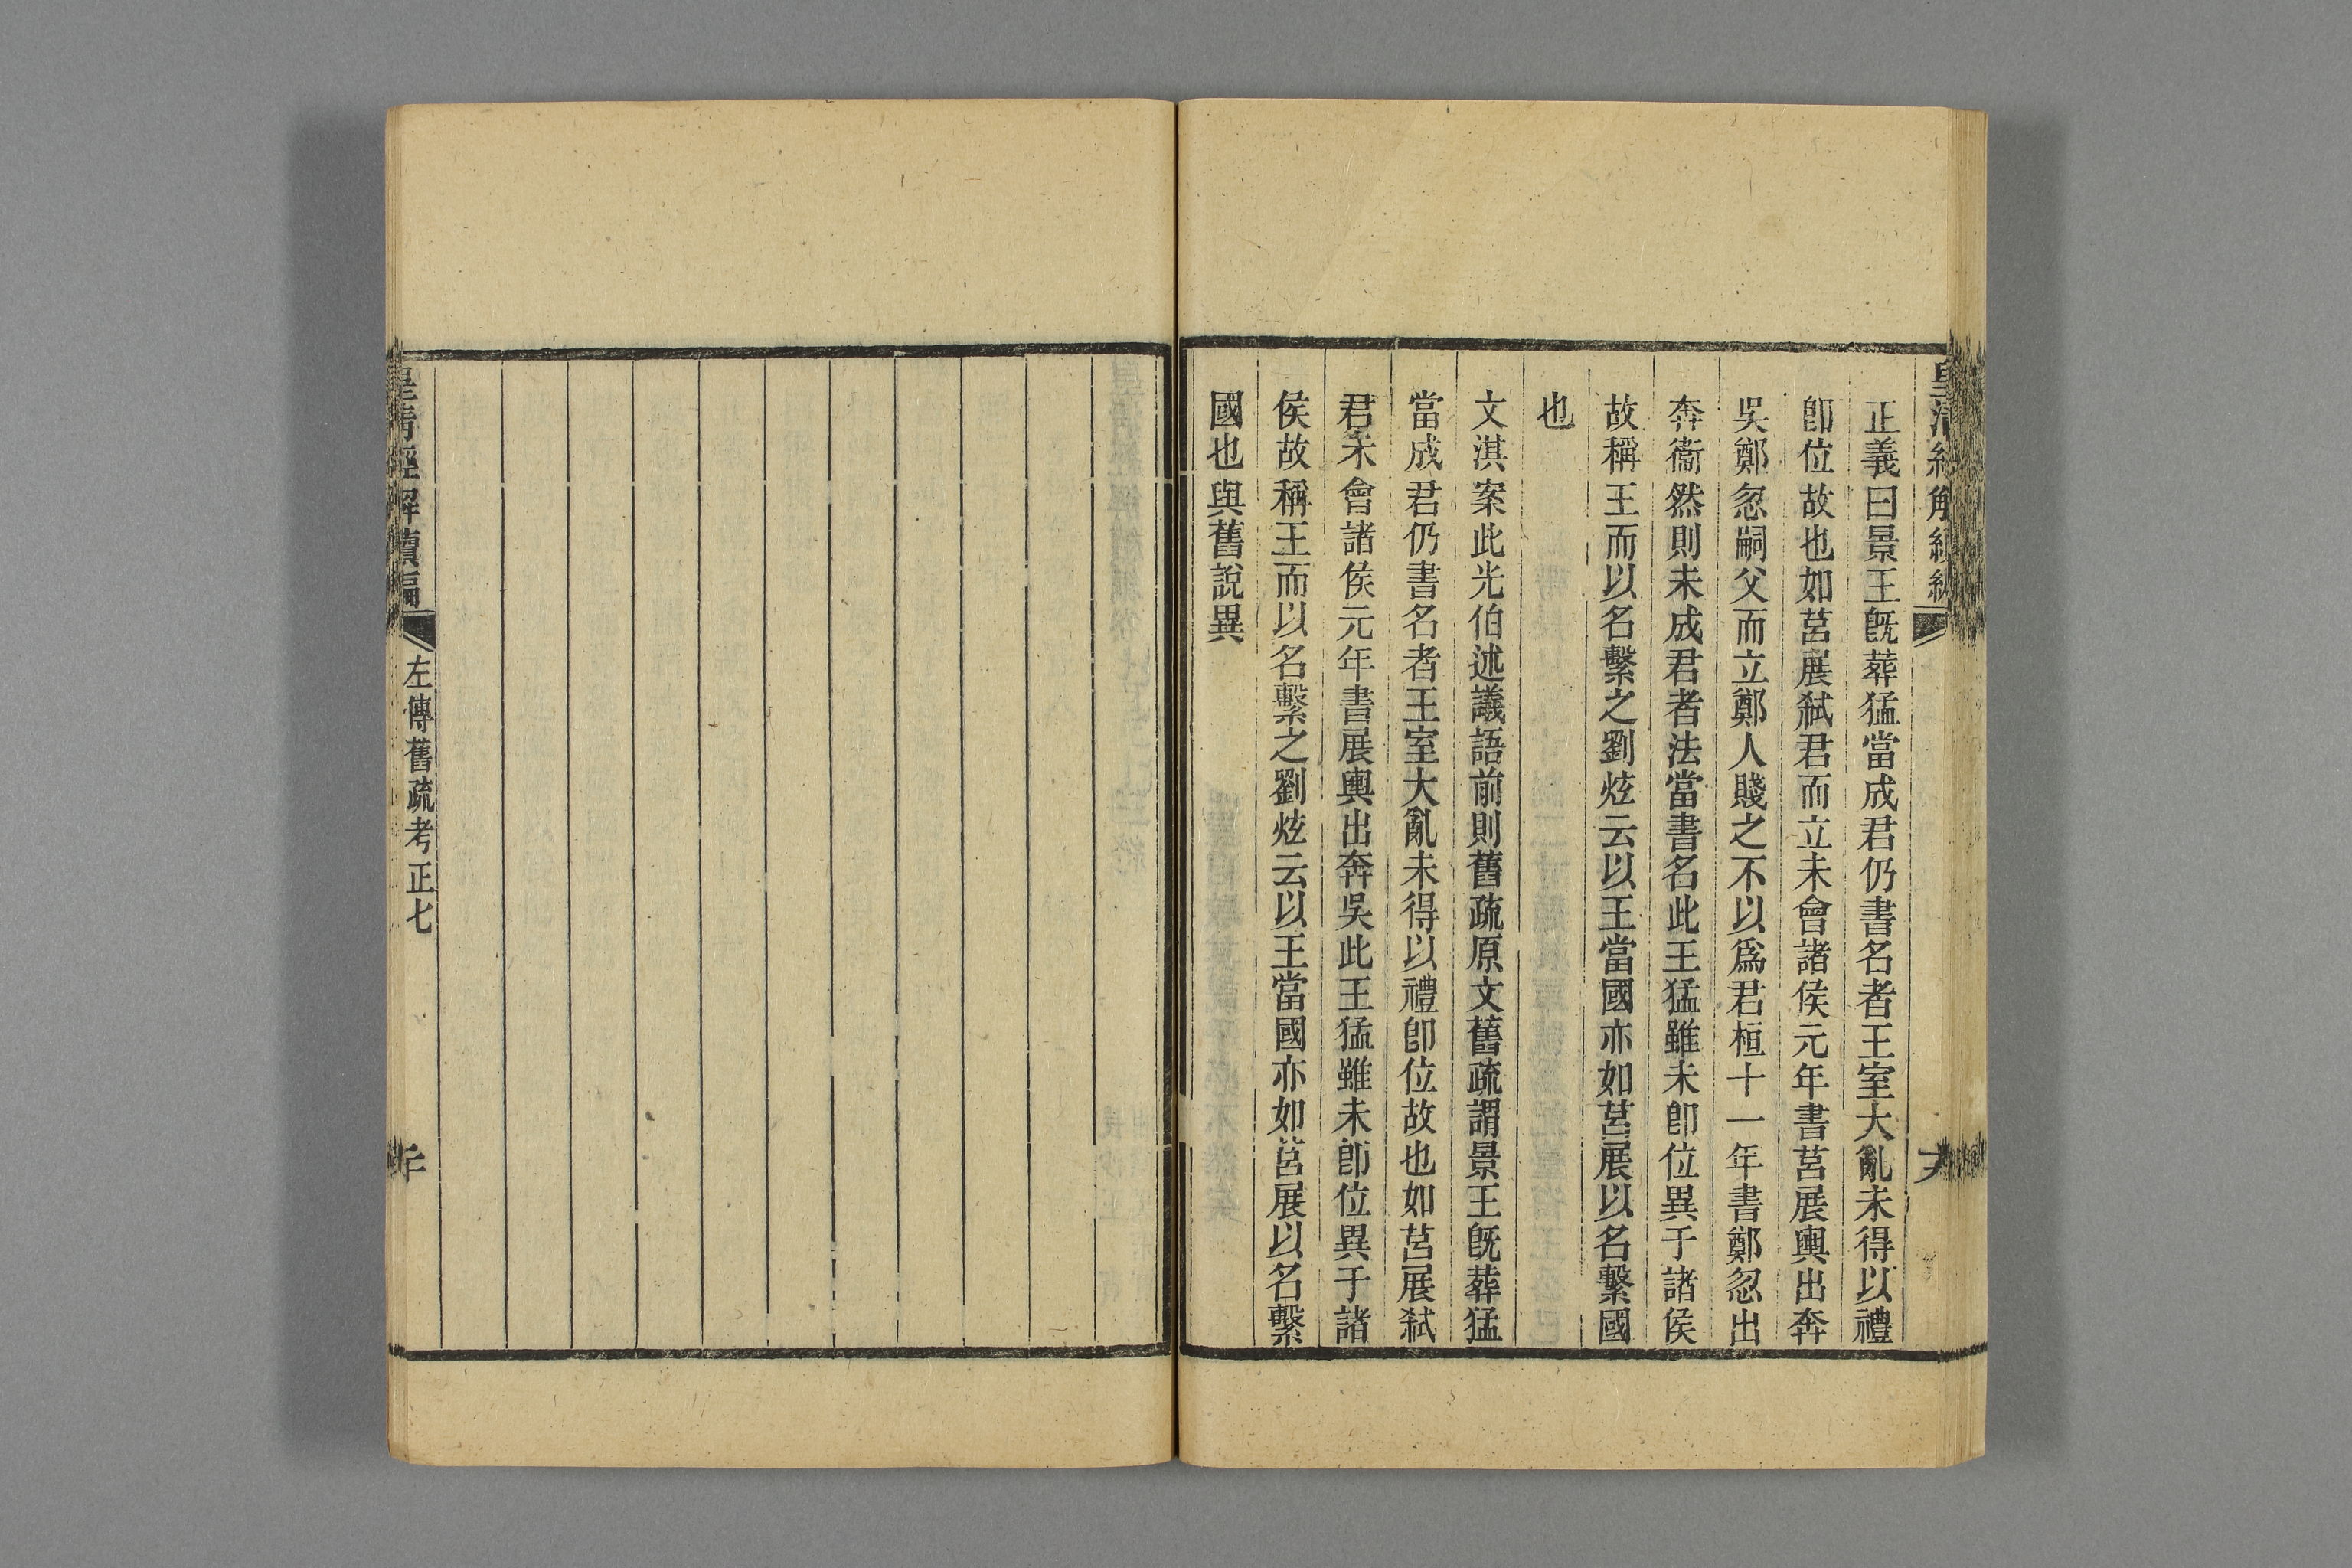 皇清經解續編
正義曰景王旣葬猛當成君仍書名者王室大亂未得以禮
卽位故也如莒展弑君而立未會諸侯元年書莒展輿出奔
吳鄭忽嗣父而立鄭人賤之不以爲君桓十一年書鄭忽出
奔衞然則未成君者法當書名此王猛雖未卽位異于諸侯
故稱王而以名繫之劉炫云以王當國亦如莒展以名繫國
也
文淇案此光伯述議語前則舊疏原文舊疏謂景王旣葬猛
當成君仍書名者王室大亂未得以禮卽位故也如莒展弑
君未會諸侯元年書展輿出奔吳此王猛雖未卽位異于諸
侯故稱王而以名繫之劉炫云以王當國亦如莒展以名繫
國也與舊說異
皇清經解續編
左傳舊疏考正七